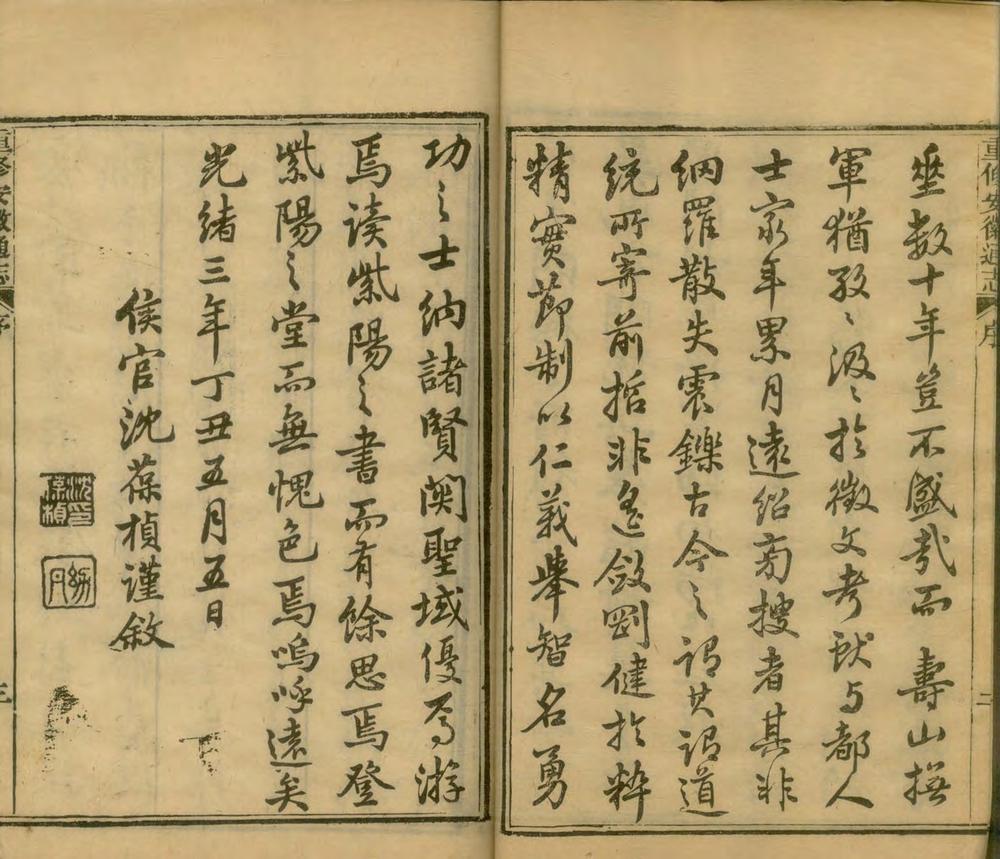 重修安徽通志 序 二
垂數十年豈不盛哉而 壽山撫
軍猶孜〻汲〻於徵文考獻与都人
士窮年累月遠紹旁搜者其非
網羅散失震鑠古今之謂其謂道
統所寄前哲非遙斂剛健於粹
精實節制以仁義舉智名勇
功之士納諸賢関聖域優焉游
焉读紫陽之書而有餘思焉登
紫陽之堂而無愧色焉嗚呼遠矣
光緒三年丁丑五月五日
侯官沈葆楨謹敘
沈葆楨印
幼丹
重修安徽通志 序 三